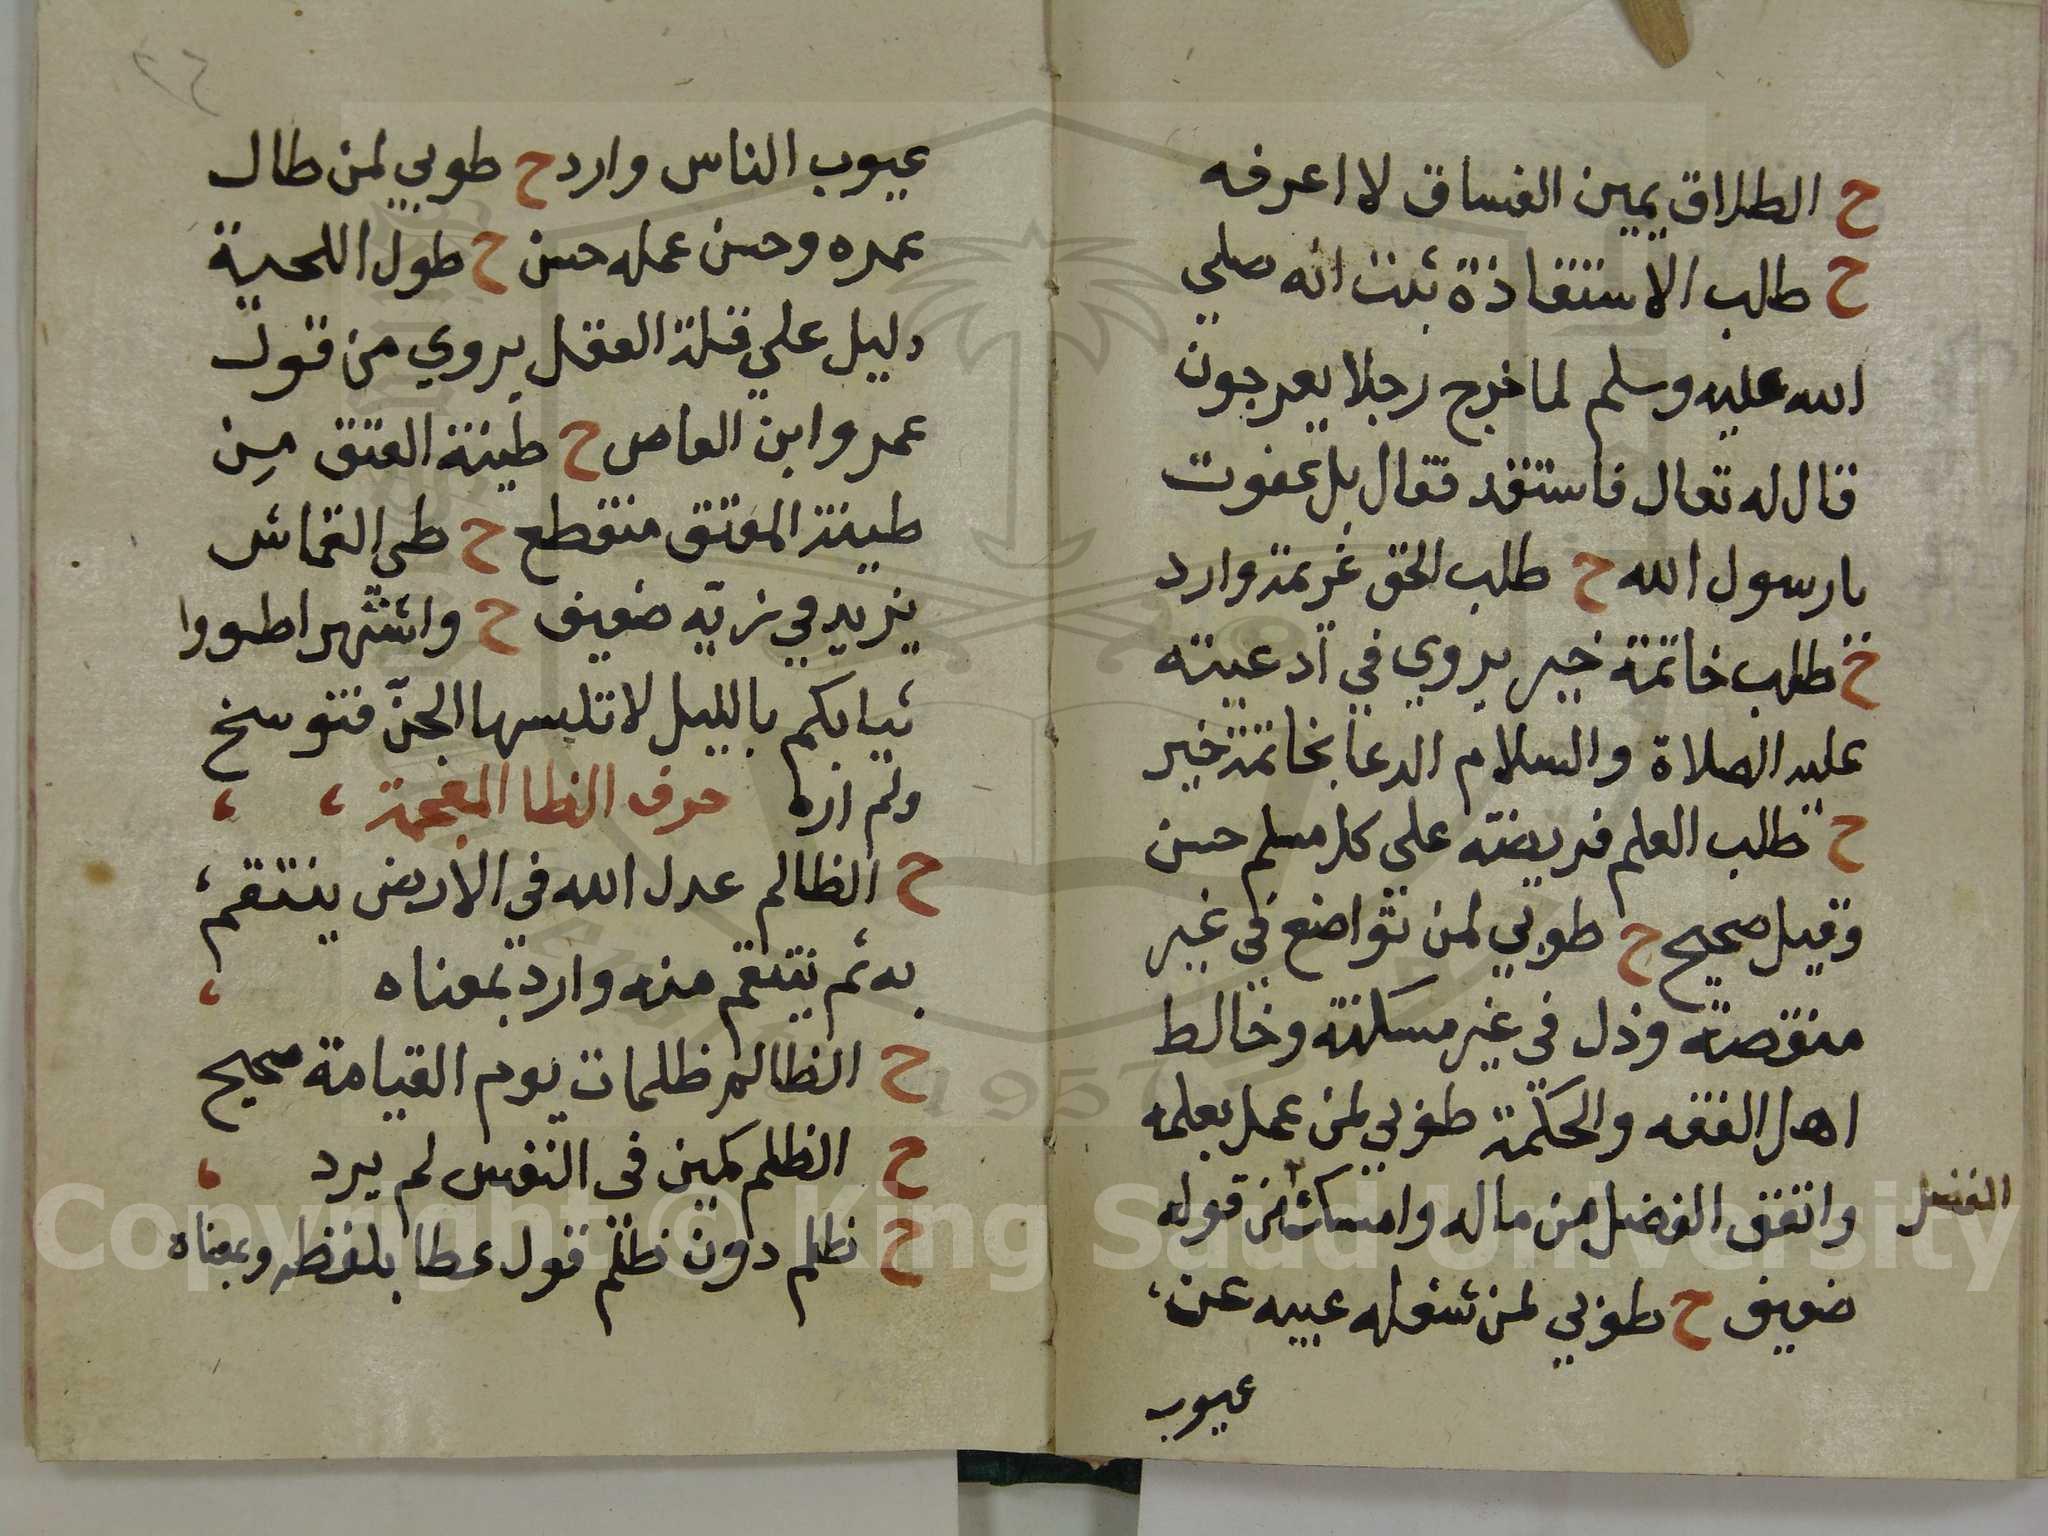 ح الطلاق يمين الفساق لا اعرفه
ح طلب الاستقادة ثبت انه صلي
الله عليه وسلم لما خرج رجلا بعرجون
قال له تعال فاستقد فقال بل عفوت
يا رسول الله ح طلب الحق غربة وارد
ح طلب خاتمة خير يروي في ادعيته
عليه الصلاة والسلام الدعا بخاتمة خير
ح طلب العلم فريضة علي كل مسلم حسن
وقيل صحيح ح طوبي لمن تواضع في غير
منقصة وذل في غير مسكنة وخالط
اهل الفقه والحكمة طوبي لمن عمل بعلمه
وانفق الفضل من ماله وامسك من قوله
الفضل
ضعيف ح طوبي لمن شغله عيبه عن
عيوب
٢٤
عيوب الناس وارد ح طوبي لمن طال
عمره وحسن عمله حسن ح طول اللحية
دليل علي قلة العقل يروي من قول
عمرو ابن العاص ح طينة العتق من
طينة المعتق منقطع ح طي القماش
يزيد في زيه ضعيف ح واشتهر اطووا
ثيابكم بالليل لا تلبسها الجن فتوسخ
ولم اره حرف الظا المعجمة
ح الظالم عدل الله في الارض ينتقم
به ثم ينتقم منه وارد بمعناه
ح الظالم ظلمات يوم القيامة صحيح
ح الظلم كمين في النفس لم يرد
ح ظلم دون ظلم قول عطا بلفظه وبمعناه
Copyright © King Saud University
1957